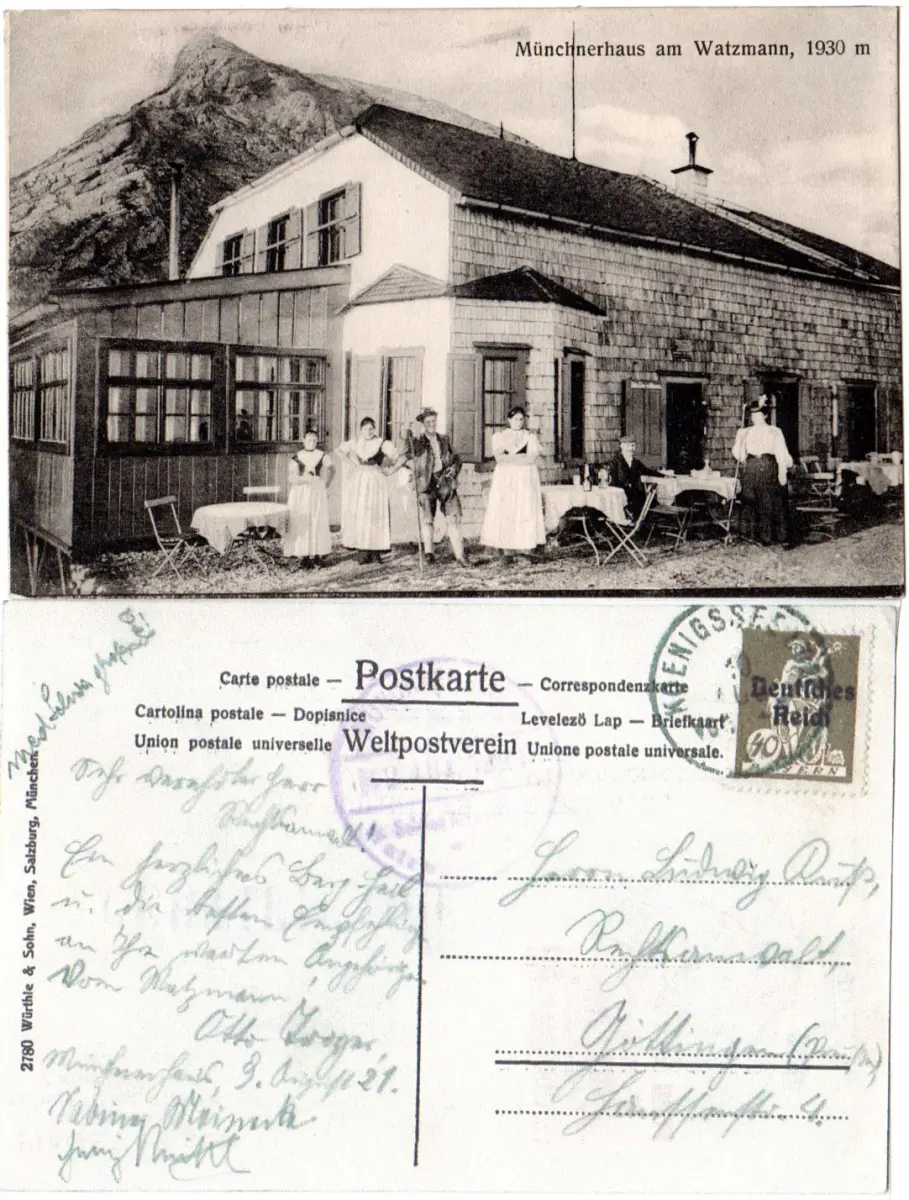 Münchnerhaus am Watzmann, 1930 m
Carte postale — Postkarte — Correspondenzkarte
Cartolina postale — Dopisnice
Levelező Lap — Briefkaart
Union postale universelle Weltpostverein Unione postale universale.
KOENIGSSEE
Deutsches
Reich
40
BAYERN
2780 Würthle & Sohn, Wien, Salzburg, München.
Sehr verehrter Herr
Rechtsanwalt!
Ein herzliches Berg Heil
u. die besten Empfehlung
an Ihre werten Angehörigen
vom Watzmann!
Otto
Münchnerhaus, 3. August 21.
Meineck
Herrn Ludwig
Rechtsanwalt,
Göttingen
4.